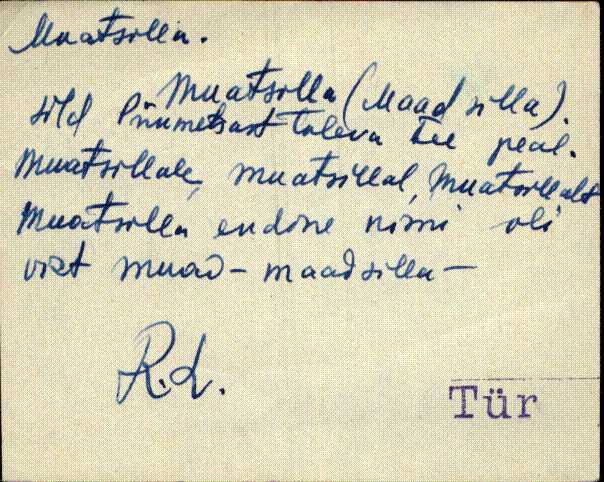 Muatsilla.
Muatsilla (Maad silla).
sild Piiumetsast tuleva tee peal.
Muatsillale, muatsillal, muatsillalt
Muatsilla endine nimi oli
vist muad - maadsilla -
R. L.
Tür